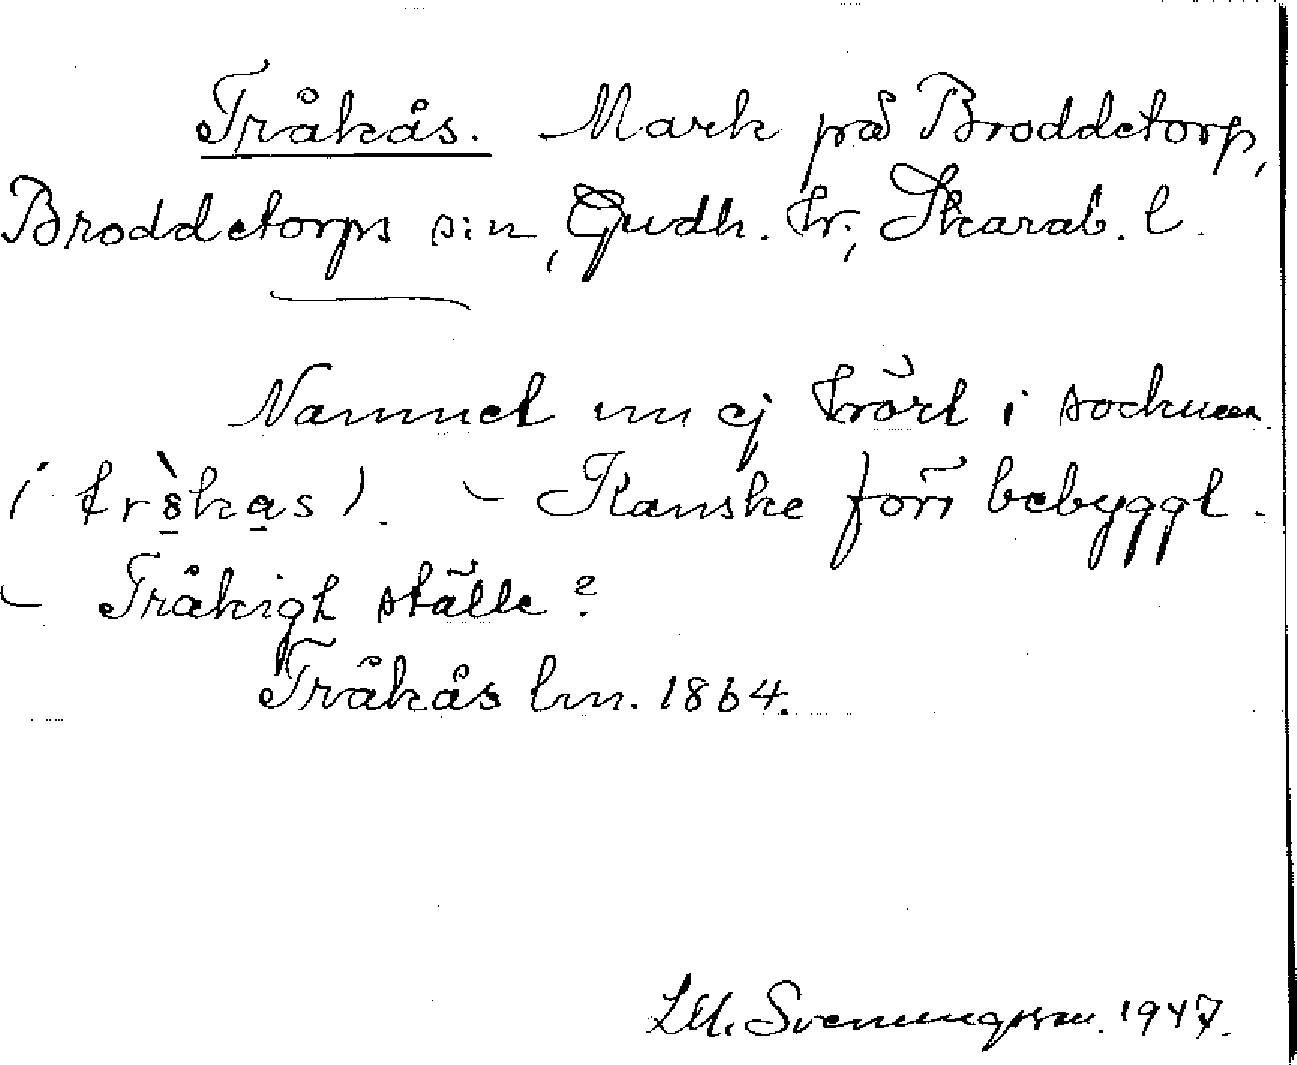 Tråkås. Mark på Broddetorp,
Broddetorps s:n, Gudh. hr., Skarab. l.
Namnet nu ej hört i socknen
(trø̀kas). – Kanske förr bebyggt.
– Tråkigt ställe?
Tråkås lm. 1864.
Svenungsson. 1947.